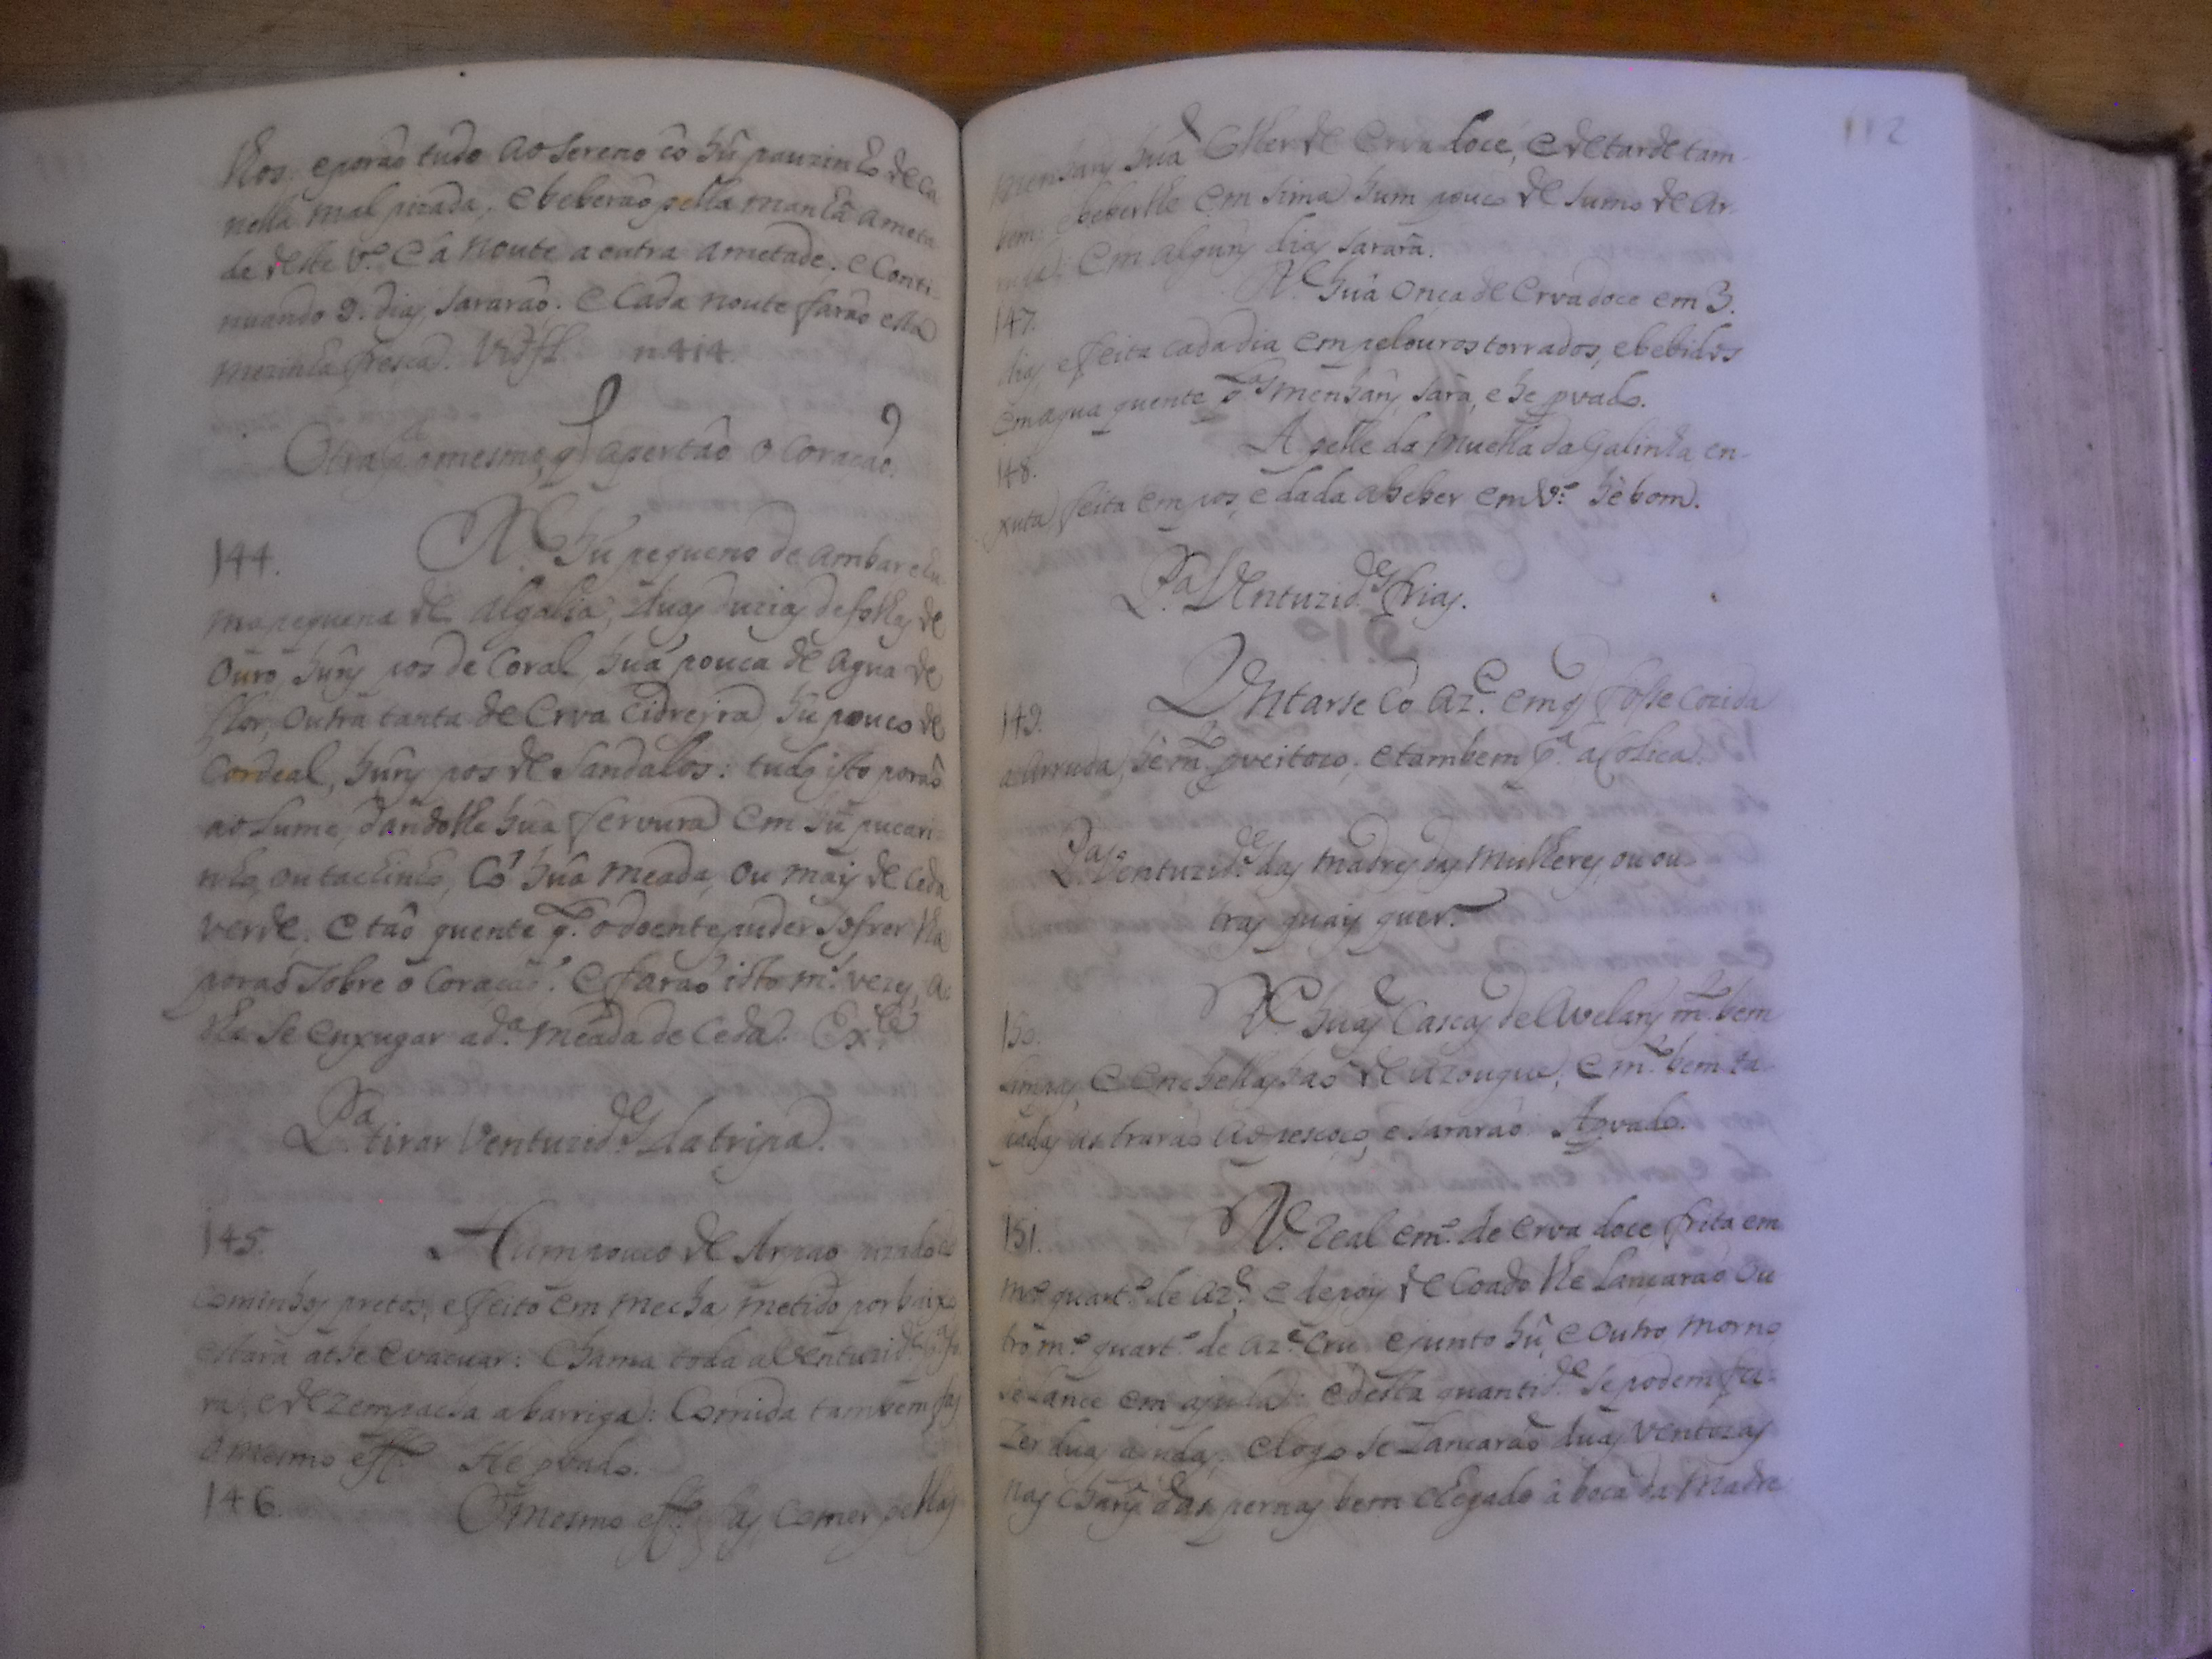 lhos, e porão tudo ao sereno cõ hũ pauzinho de Ca
nella mal pizada, e beberão pella manhã ameta
de deste vº. e â noute a outra ametade. e Conti-
nuando 9. dias sararão. e Cada noute farão esta
mezinha fresca. n. 414.
Otra pª o mesmo q̃ apertão o Coração.
144. Rᵉ. hũ pequeno de ambar e hu
ma pequena de algalia, duas duzias de folhas de
Ouro, hũns pos de Coral, huã pouca de agua de
flor, outra tanta de Erva Cidreira, hũ pouco de
Cordeal, hũns pos de Sandalos: tudo isto porão
ao lume, dandolhe huã fervura em hũ pucari-
nho, ou tachinho, Cõ huã meada, ou mais de Ceda
verde, e tão quente q̃. o doente puder sofrer lha
porão sobre o Coração. e farão isto mᵗ. vezes, a
lhe se enxugar a dª. meada de Ceda. Exᶜᵉ
Pª. tirar Ventuzidᵉˢ da tripa.
145. Hum pouco de Arpão pizado cõ
Cominhos pretos, e feito em mecha metido por baixo
estarâ athe evacuar: Chama toda a Ventuzidᵉ pª fo
ra, e dezempacha a barriga: Comida tambem fas
o mesmo effᵗᵒ. He pvado.
146. O mesmo effᵗᵒ fas comer pellas
menhans huã Colher de Erva doce, e de tarde tam
bem, e beberlhe em sima hum pouco de sumo de Ar-
Em alguns dias sararâ.
147. Rᵉ. huã Onça de Erva doce em 3.
dias, e feita cada dia em pelouros torrados, e bebidos
em agua quente pᵃˢ menhans, sara, e he pvado.
148. A pelle da muella da Galinha en-
xuta, feita em pos, e dada a beber em vº. hê bom.
Pª. Ventuzidᵉˢ frias.
149. Untarse Cõ azᵉ. em q̃ fosse Cozida
a Arruda, hê mᵗᵒ pveitozo, e tambem pª. a Colica.
Pª. Ventuzidᵉˢ das madres das Mulheres, ou ou
tras quais quer.
150. Rᵉ. huas Cascas de Avelans mᵗᵒ. bem
limpas, e enchellashaõ de azougue, e mᵗᵒ. bem ta
padas as trarão ao pescoço, e sararão. Apvado.
151. Rᵉ. Real e mº. de erva doce frita em
mº quartº. de azᵉ. e depois de Coado lhe lançarão Ou
tro mº. quartº. de azᵉ. Cru e junto hũ, e outro morno
se lance em ajuda. e desta quantidᵉ. se podem fa-
zer duas ajudas. e logo se lançarão duas Ventozas
nas Chans das pernas bem chegado â boca da Madre
112